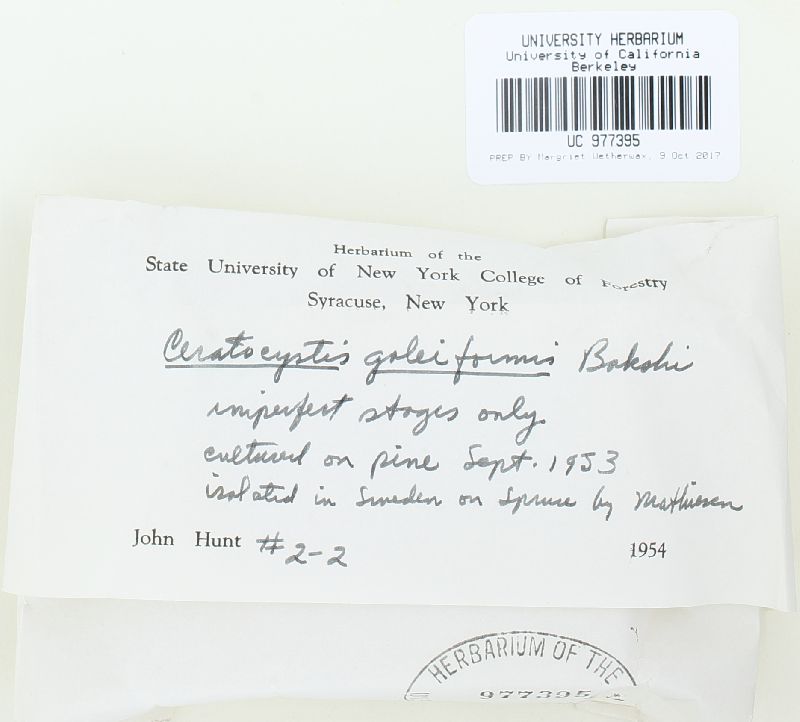 UNIVERSITY HERBARIUM
University of California
Berkeley
UC 977395
PREP By Margriet Wetherwax, 9 Oct 2017
Herbarium of the
State University of New York College of Forestry
Syracuse, New York
Ceratocystis galeiformis Bakshi
imperfect stages only
cultured on pine Sept. 1953
isolated in Sweden on spruce by Mathiesen
John Hunt #2-2 1954
HERBARIUM OF THE
977395